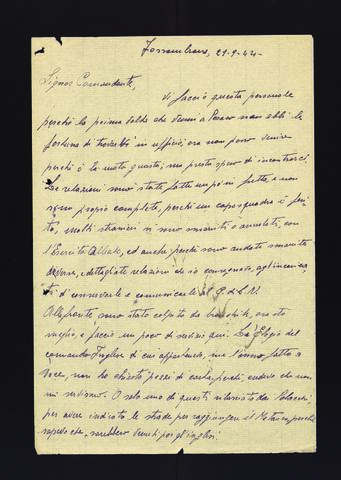 Fossombrone, 29-9-44-
Signor Comandante,
Vi faccio questa personale
perché la prima volta che venni a Pesaro non ebbi la
fortuna di trovarvi in ufficio, ora non posso venire
perché è la moto guasta; ma presto spero di incontrarci.
Le relazioni sono state fatte un po' in fretta e non
sono proprio complete, perché un caposquadra è feri-
to, molti stranieri si sono smontati o arruolati con
l'Esercito Alleato, ed anche perché sono andate smarrite
diverse, e dettagliate relazioni che io consegnavo agli incarica-
ti di consegnarle e comunicarle al C.d.L.N.
Al fronte sono stato colpito da ora sto
meglio, e faccio un poco di servizio qui. Gli Elogi del
comando Inglese di cui appartenevo, me l'hanno fatto a
voce, non ho chiesto pezzi di carta, perché credevo che non
mi servissero. O solo uno di questi rilasciato dai Polacchi
per avere indicato le strade per raggiungere il Metauro, perché
sapevo che sarebbero serviti poi gl'inglesi.